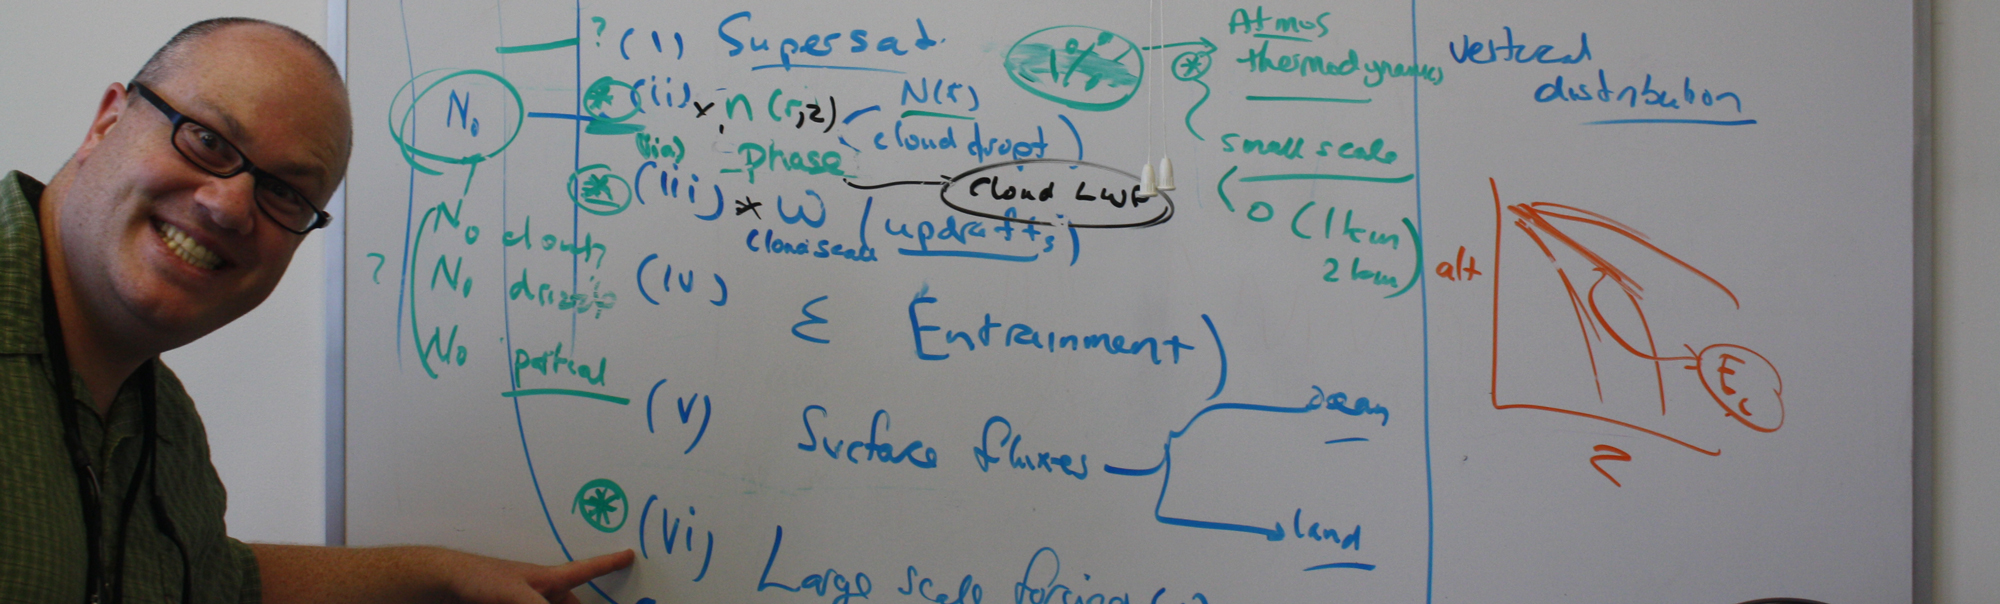 ? (i) Supersat.
(ii) x n(r,z) N(r)
(cloud dropt)
(iia) phase
cloud LWP
(iii) x W (updrafts)
cloud scale
(iv) ε Entrainment)
(v) Surface fluxes
ocean
land
(vi) Large scale forcing
N₀
? N₀ cloud
N₀ drizzle
N₀ partial
1%
Atmos
thermodynamics
small scale
O (1km
2km)
vertical
distribution
alt
Z